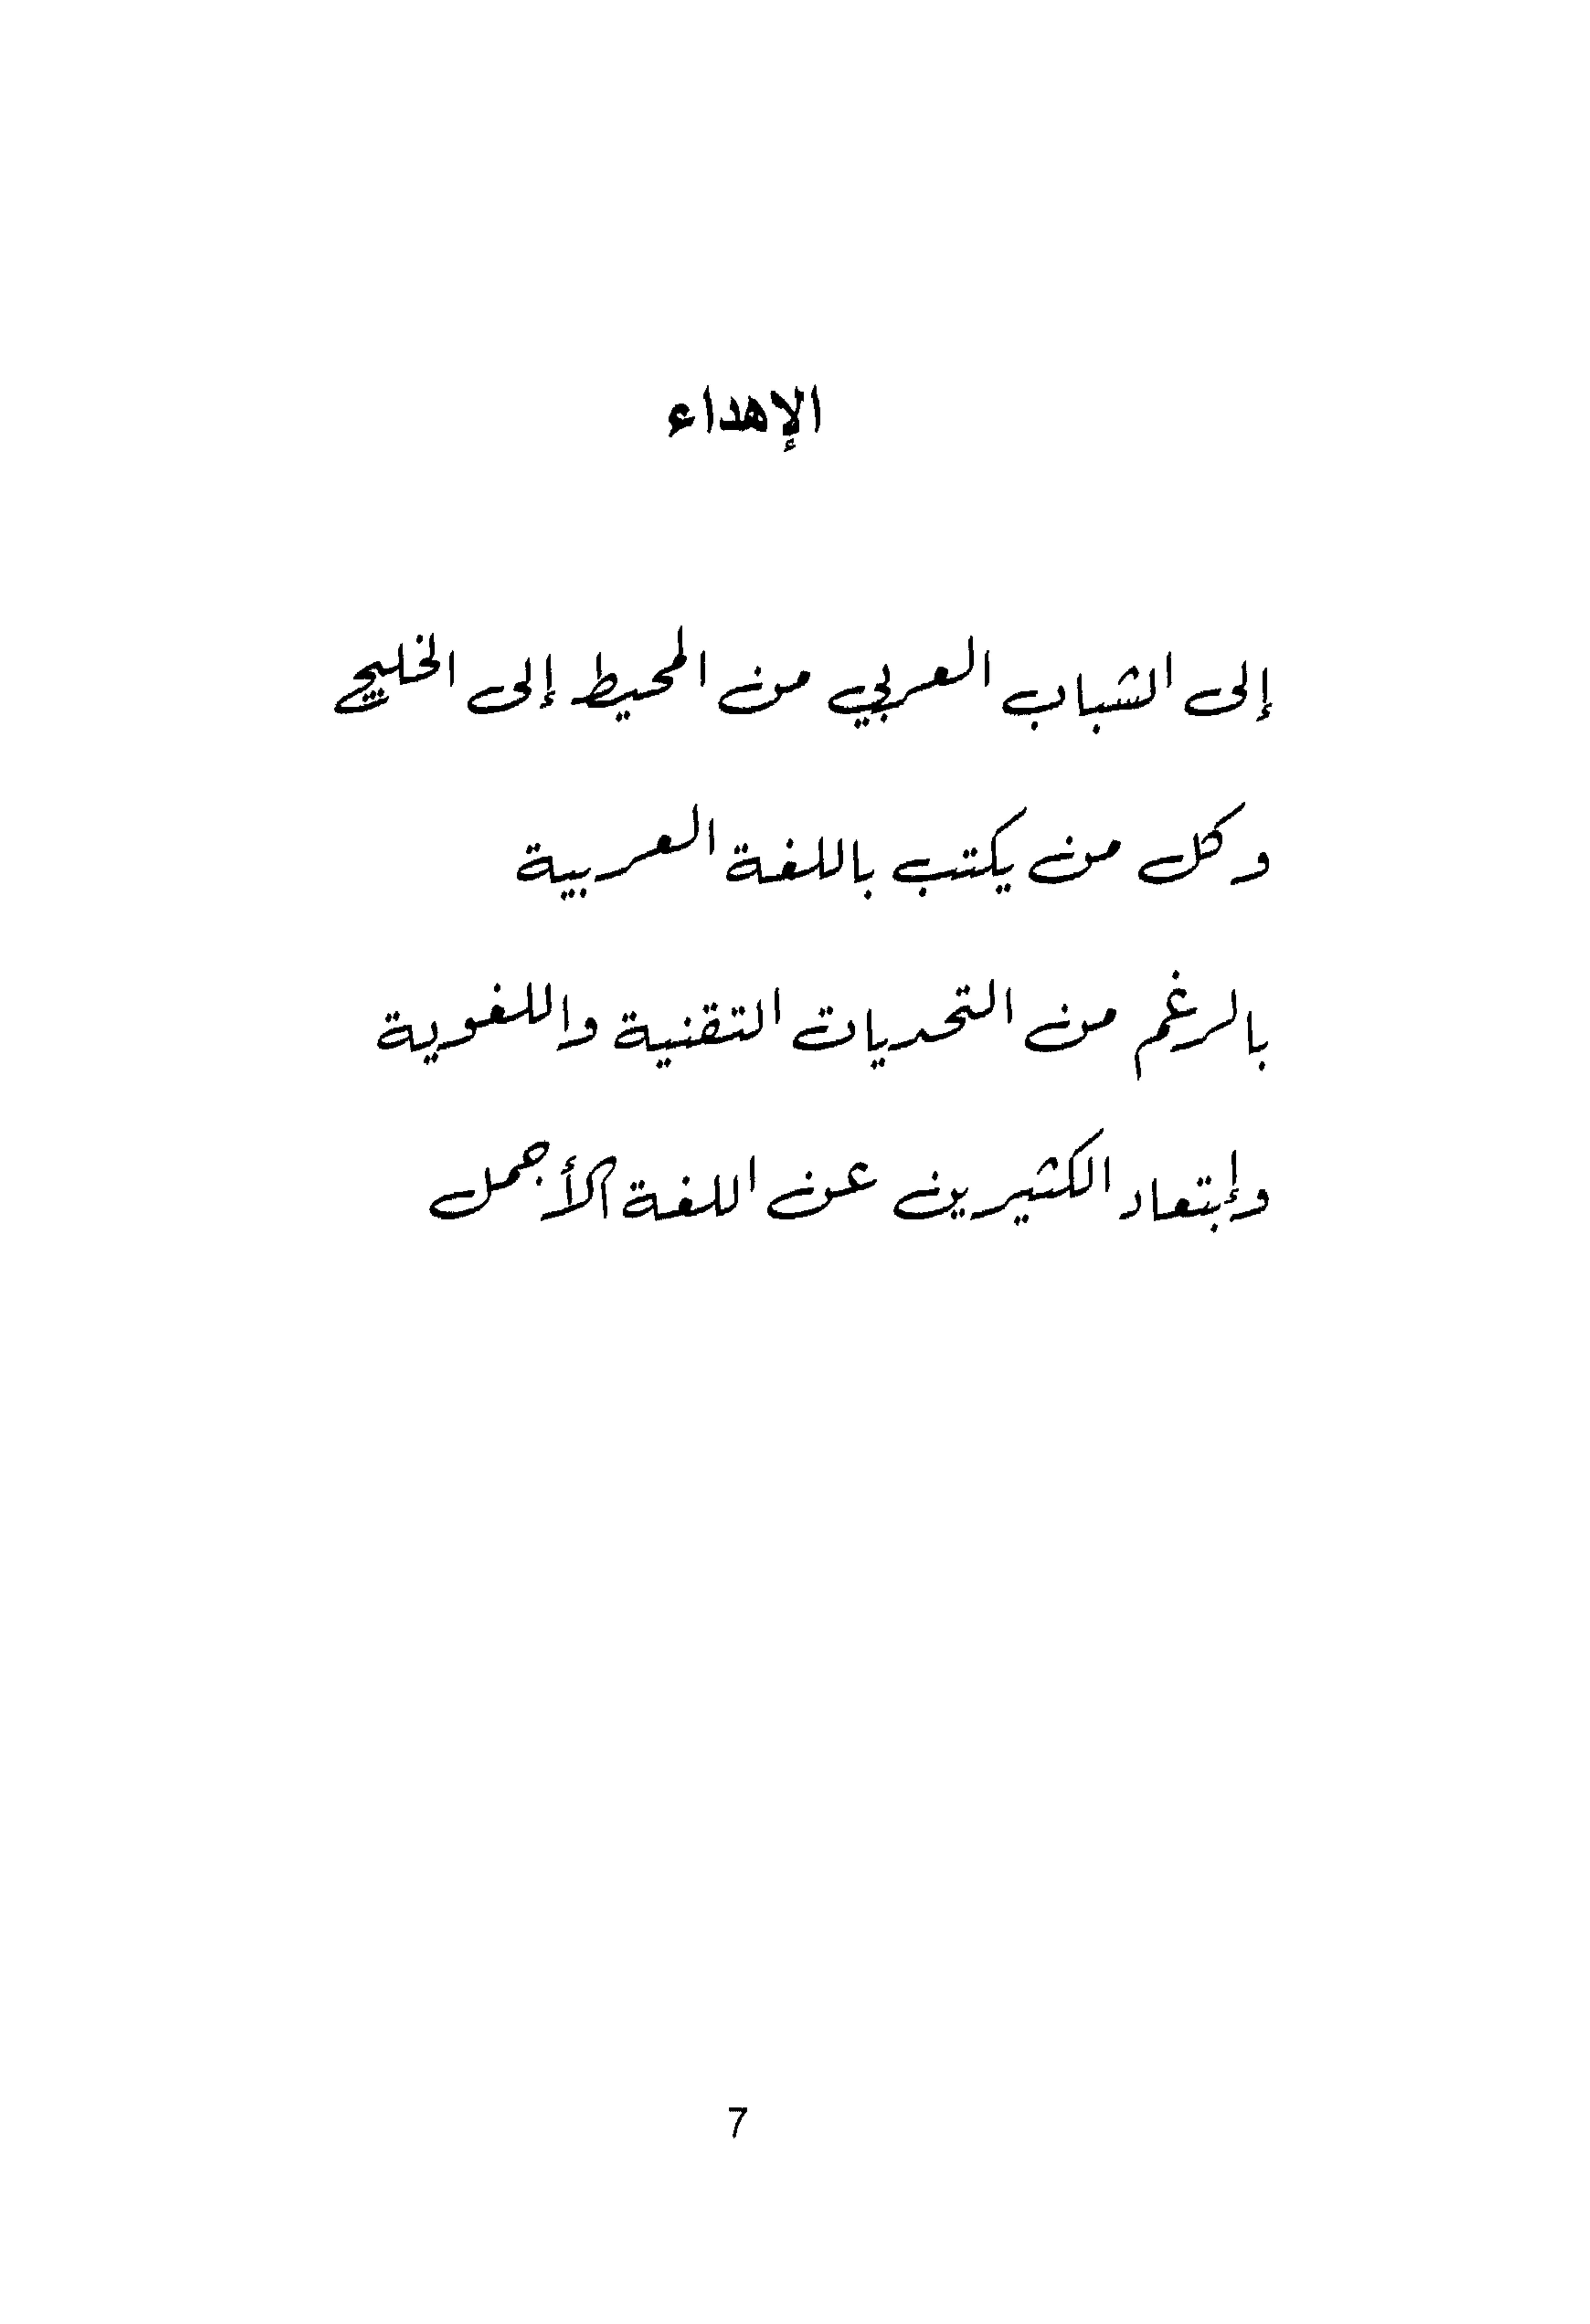 الإهداء
إلى الشباب العربي من المحيط إلى الخليج
وكل من يكتب باللغة العربية
بالرغم من التحديات التقنية واللغوية
وإبتعاد الكثيرين عن اللغة الأجمل
7